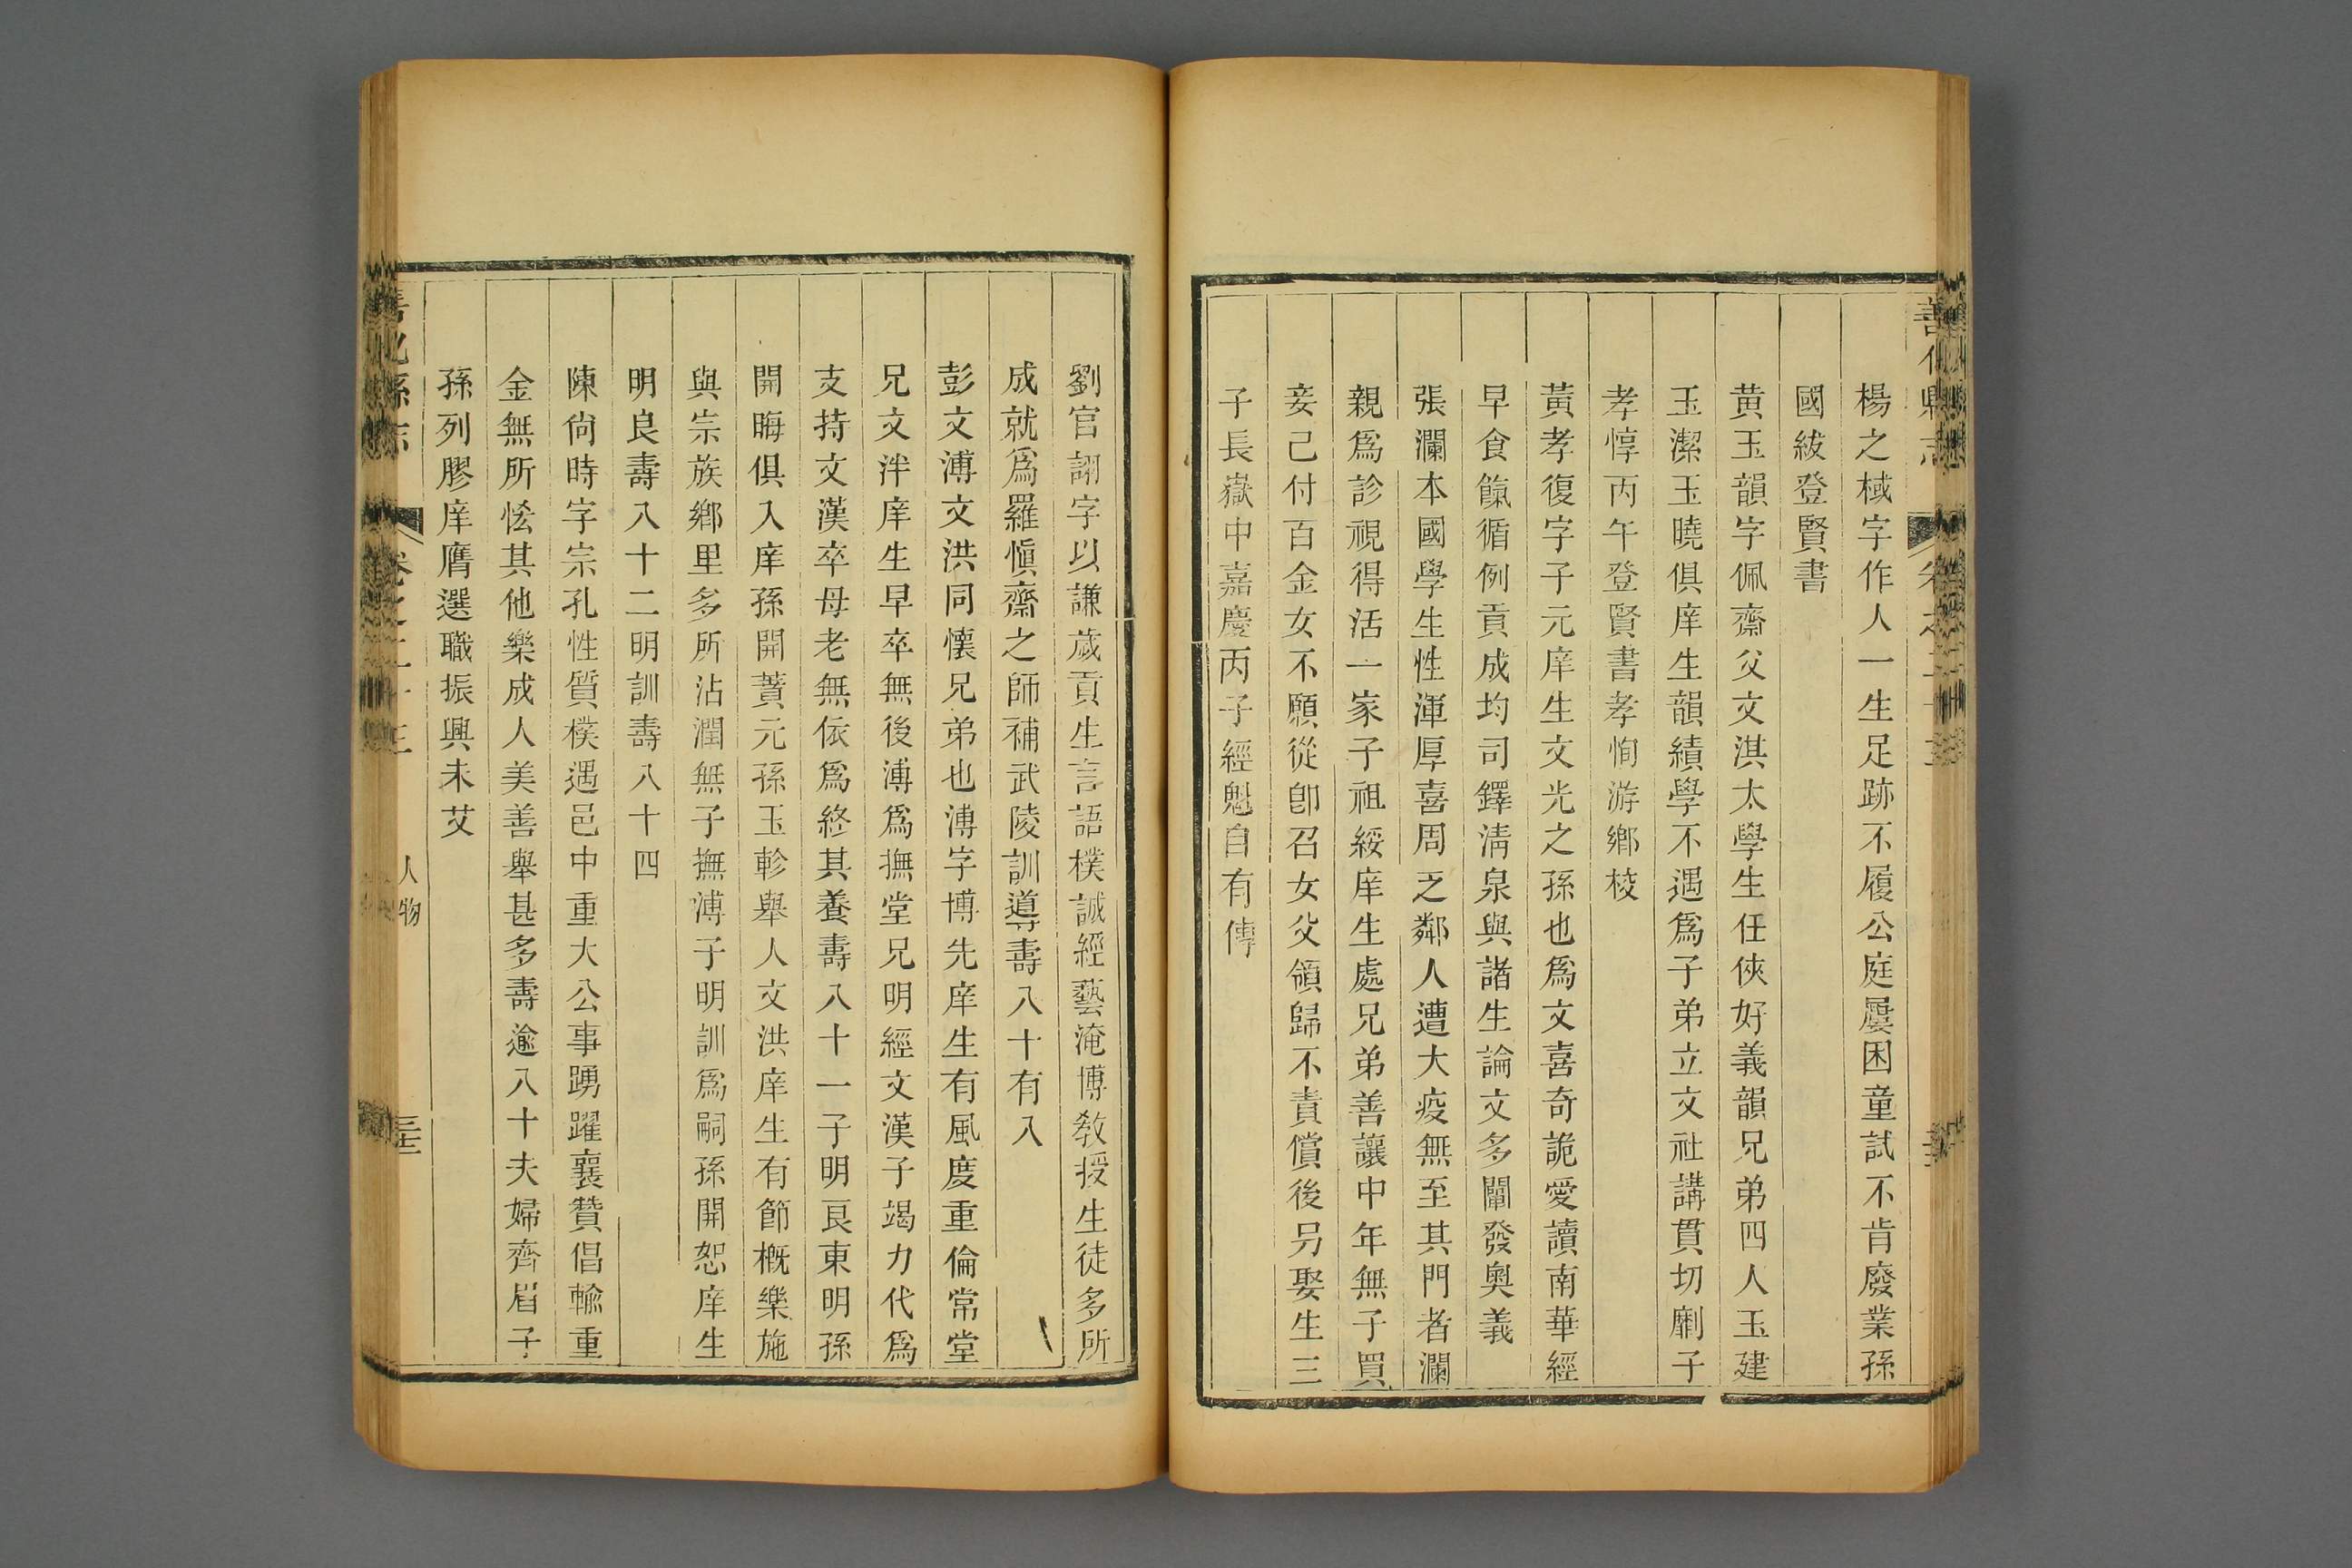 善化縣志
楊之棫字作人一生足跡不履公庭屢困童試不肯廢業孫
國紱登賢書
黄玉韻字佩齋父文淇太學生任俠好義韻兄弟四人玉建
玉潔玉曉俱庠生韻績學不遇爲子弟立文社講貫切劘子
孝惇丙午登賢書孝恂游鄉校
黃孝復字子元庠生文光之孫也爲文喜奇詭愛讀南華經
早食餼循例貢成均司鐸淸泉與諸生論文多闡發奧義
張瀾本國學生性渾厚喜周乏鄰人遭大疫無至其門者瀾
親爲診視得活一家子祖綏庠生處兄弟善讓中年無子買
妾己付百金女不願從卽召女父領歸不責償後另娶生三
子長嶽中嘉慶丙子經魁自有傳
劉官詡字以謙歲貢生言語樸誠經藝淹博敎授生徒多所
成就爲羅愼齋之師補武陵訓導壽八十有八
彭文溥文洪同懷兄弟也溥字博先庠生有風度重倫常堂
兄文泮庠生早卒無後溥爲撫堂兄明經文漢子竭力代爲
支持文漢卒母老無依爲終其養壽八十一子明良東明孫
開晦俱入庠孫開蕡元孫玉軫舉人文洪庠生有節槪樂施
與宗族鄉里多所沾潤無子撫溥子明訓爲嗣孫開恕庠生
明良壽八十二明訓壽八十四
陳尙時字宗孔性質樸遇邑中重大公事踴躍襄贊倡輸重
金無所恡其他樂成人美善舉甚多壽逾八十夫婦齊眉子
孫列膠庠膺選職振興未艾
善化縣志
卷之二十三
人物